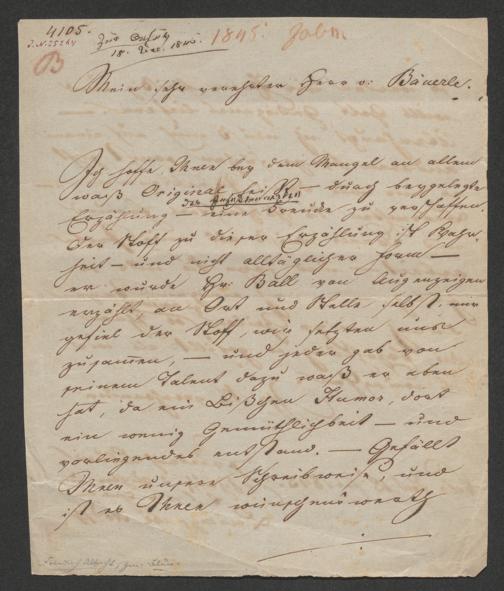 4105.
J.N. 25274
zur Ansicht
18. Dez. 1845.
1845.
B
Mein sehr verehrter Herr v. Bäuerle.
Ich hoffe Ihnen bey dem Mangel an allem
waß Original heißt — durch beygelegte
Erzählung — eine Freude zu verschaffen.
Der Stoff zu dieser Erzählung ist Wahr-
heit — und nicht alltäglicher Form —
er wurde Hr. Ball von Augenzeigen
erzählt, an Ort und Stelle selbst, mir
gefiel der Stoff, wir setzten uns
zusammen, — und jeder gab von
seinem Talent dazu waß er eben
hat, da ein Bißchen Humor, dort
ein wenig Gemüthlichkeit — und
vorliegendes entstand. — Gefällt
Ihnen unsere Schreibweise, und
ist es Ihnen wünschenswerth